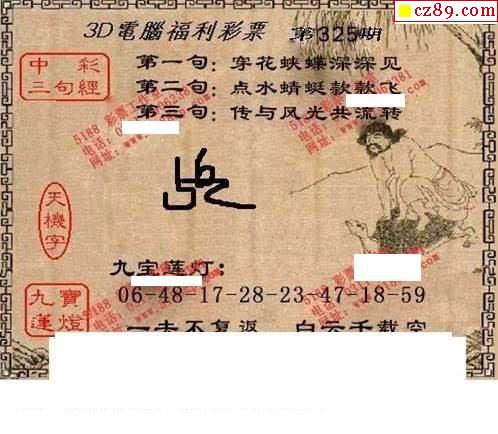 cz89.com
3D電腦福利彩票 第325期
中彩三句經
第一句：穿花蛱蝶深深见
第二句：点水蜻蜓款款飞
第三句：传与风光共流转
天機字
九宝莲灯：
九寶蓮燈
06-48-17-28-23-47-18-59
一去不复返 白云千载空